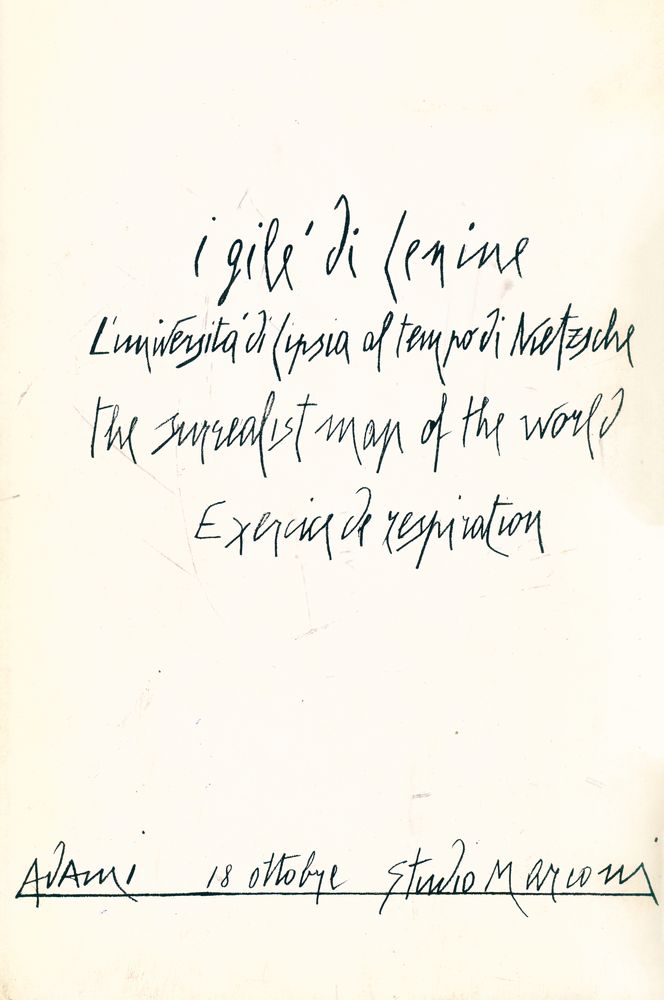 i gilé di Lenine
L'università di Lipsia al tempo di Nietzsche
the surrealist map of the world
Exercice de respiration
Adami 18 ottobre Studio Marconi